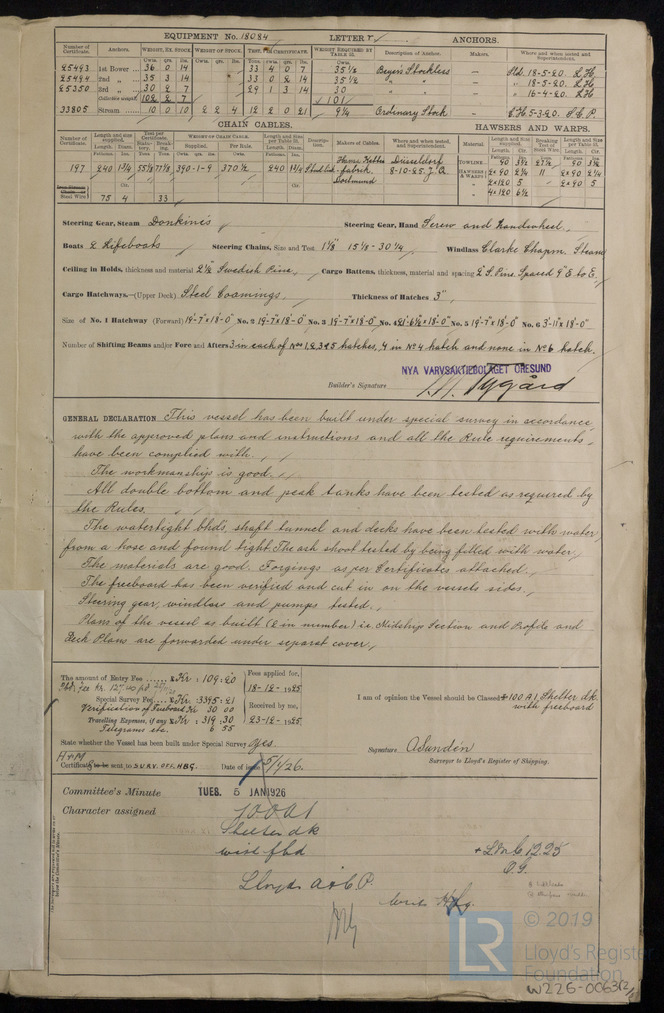 EQUIPMENT No. 18084 LETTER r ANCHORS.
Number of Certificate. Anchors. WEIGHT, EX. STOCK WEIGHT OF STOCK. TEST, PER CERTIFICATE. WEIGHT REQUIRED BY TABLE 31. Description of Anchor. Makers. Where and when tested and Superintendent.
25493 1st Bower ... 36 0 14 33 4 0 7 35½ Byers Stockless — Sld. 18-5-20. L.H.
25494 2nd „ ... 35 3 14 33 0 2 14 35½ „ — „ 18-5-20. L.H.
25350 3rd „ ... 30 2 7 29 1 3 14 30 „ — „ 16-4-20. L.H.
Collective weight 102 2 7 101
33805 Stream ... 10 0 10 2 2 4 12 2 0 21 9¼ Ordinary Stock — C.H. 5-3-20. S.C.P.
CHAIN CABLES. HAWSERS AND WARPS.
Number of Certificate. Length and size supplied. Test per Certificate WEIGHT OF CHAIN CABLE. Length and size per Table 31. Description. Makers of Cables. Where and when tested, and Superintendent. Material. Length and Size supplied. Breaking Test of Steel Wire. Length and Size per Table 31.
197 240 1¾ 55½ 77⅛ 390-1-9 370½ 240 1¾ Stud link
fabrik Dortmund
Düsseldorf 8-10-25. J.A.
TOWLINE 90 3½ 27½ 90 3½
HAWSERS & WARPS 2×90 2¼ 11 2×90 2¼
„ 2×120 5 2×90 5
„ 4×120 6½
Steel Wire 75 4 33
Steering Gear, Steam Donkin's Steering Gear, Hand Screw and Handwheel.
Boats 2 Lifeboats Steering Chains, Size and Test 1⅛" 15⅛ - 30¼ Windlass Clarke Chapm. Steam
Ceiling in Holds, thickness and material 2½" Swedish Pine, Cargo Battens, thickness, material and spacing 2" S. Pine Spaced 9" E to E.
Cargo Hatchways.—(Upper Deck). Steel Coamings, Thickness of Hatches 3",
Size of No. 1 Hatchway (Forward) 19'-7"×18'-0" No. 2 19'-7"×18'-0" No. 3 19'-7"×18'-0" No. 4 21'-6½"×18'-0" No. 5 19'-7"×18'-0" No. 6 3'-11"×18'-0"
Number of Shifting Beams and/or Fore and Afters 3 in each of Nos 1,2,3 & 5 hatches, 4 in No 4 hatch and none in No 6 hatch.
NYA VARVSAKTIEBOLAGET ÖRESUND
Builder's Signature Nygård
GENERAL DECLARATION This vessel has been built under special survey in accordance
with the approved plans and instructions and all the Rule requirements,
have been complied with.
The workmanship is good.
All double bottom and peak tanks have been tested as required by
the Rules.
The watertight bhds, shaft tunnel and decks have been tested with water,
from a hose and found tight. The ash shoot tested by being filled with water,
The materials are good. Forgings as per Certificates attached,
The freeboard has been verified and cut in on the vessels sides,
Steering gear, windlass and pumps tested,
Plans of the vessel as built (2 in number) i.e. Midship Section and Profile and
Deck Plans are forwarded under separat cover,
The amount of Entry Fee ...... Kr : 109:20 Fees applied for,
18-12-1925
Special Survey Fee Kr : 3395:21 Received by me,
Verification of Freeboard Kr 30 00
Travelling Expenses, if any Kr : 319:30 23-12-1925
Telegrams etc. 6 55
I am of opinion the Vessel should be Classed +100 A1, Shelter dk
with freeboard
State whether the Vessel has been built under Special Survey yes.
Signature A Sundén
Surveyor to Lloyd's Register of Shipping.
H & M
Certificate to be sent to SURV. OFF. HBG. Date of issue 5/1/26.
Committee's Minute TUES. 5 JAN 1926
Character assigned 100A1
Shelter dk
with fbd
Lloyds A & C.P.
+ LMC 12.25
O.G.
Write Hbg.
© 2019
LR Lloyd's Register
Foundation
W226-0063 (2/2)